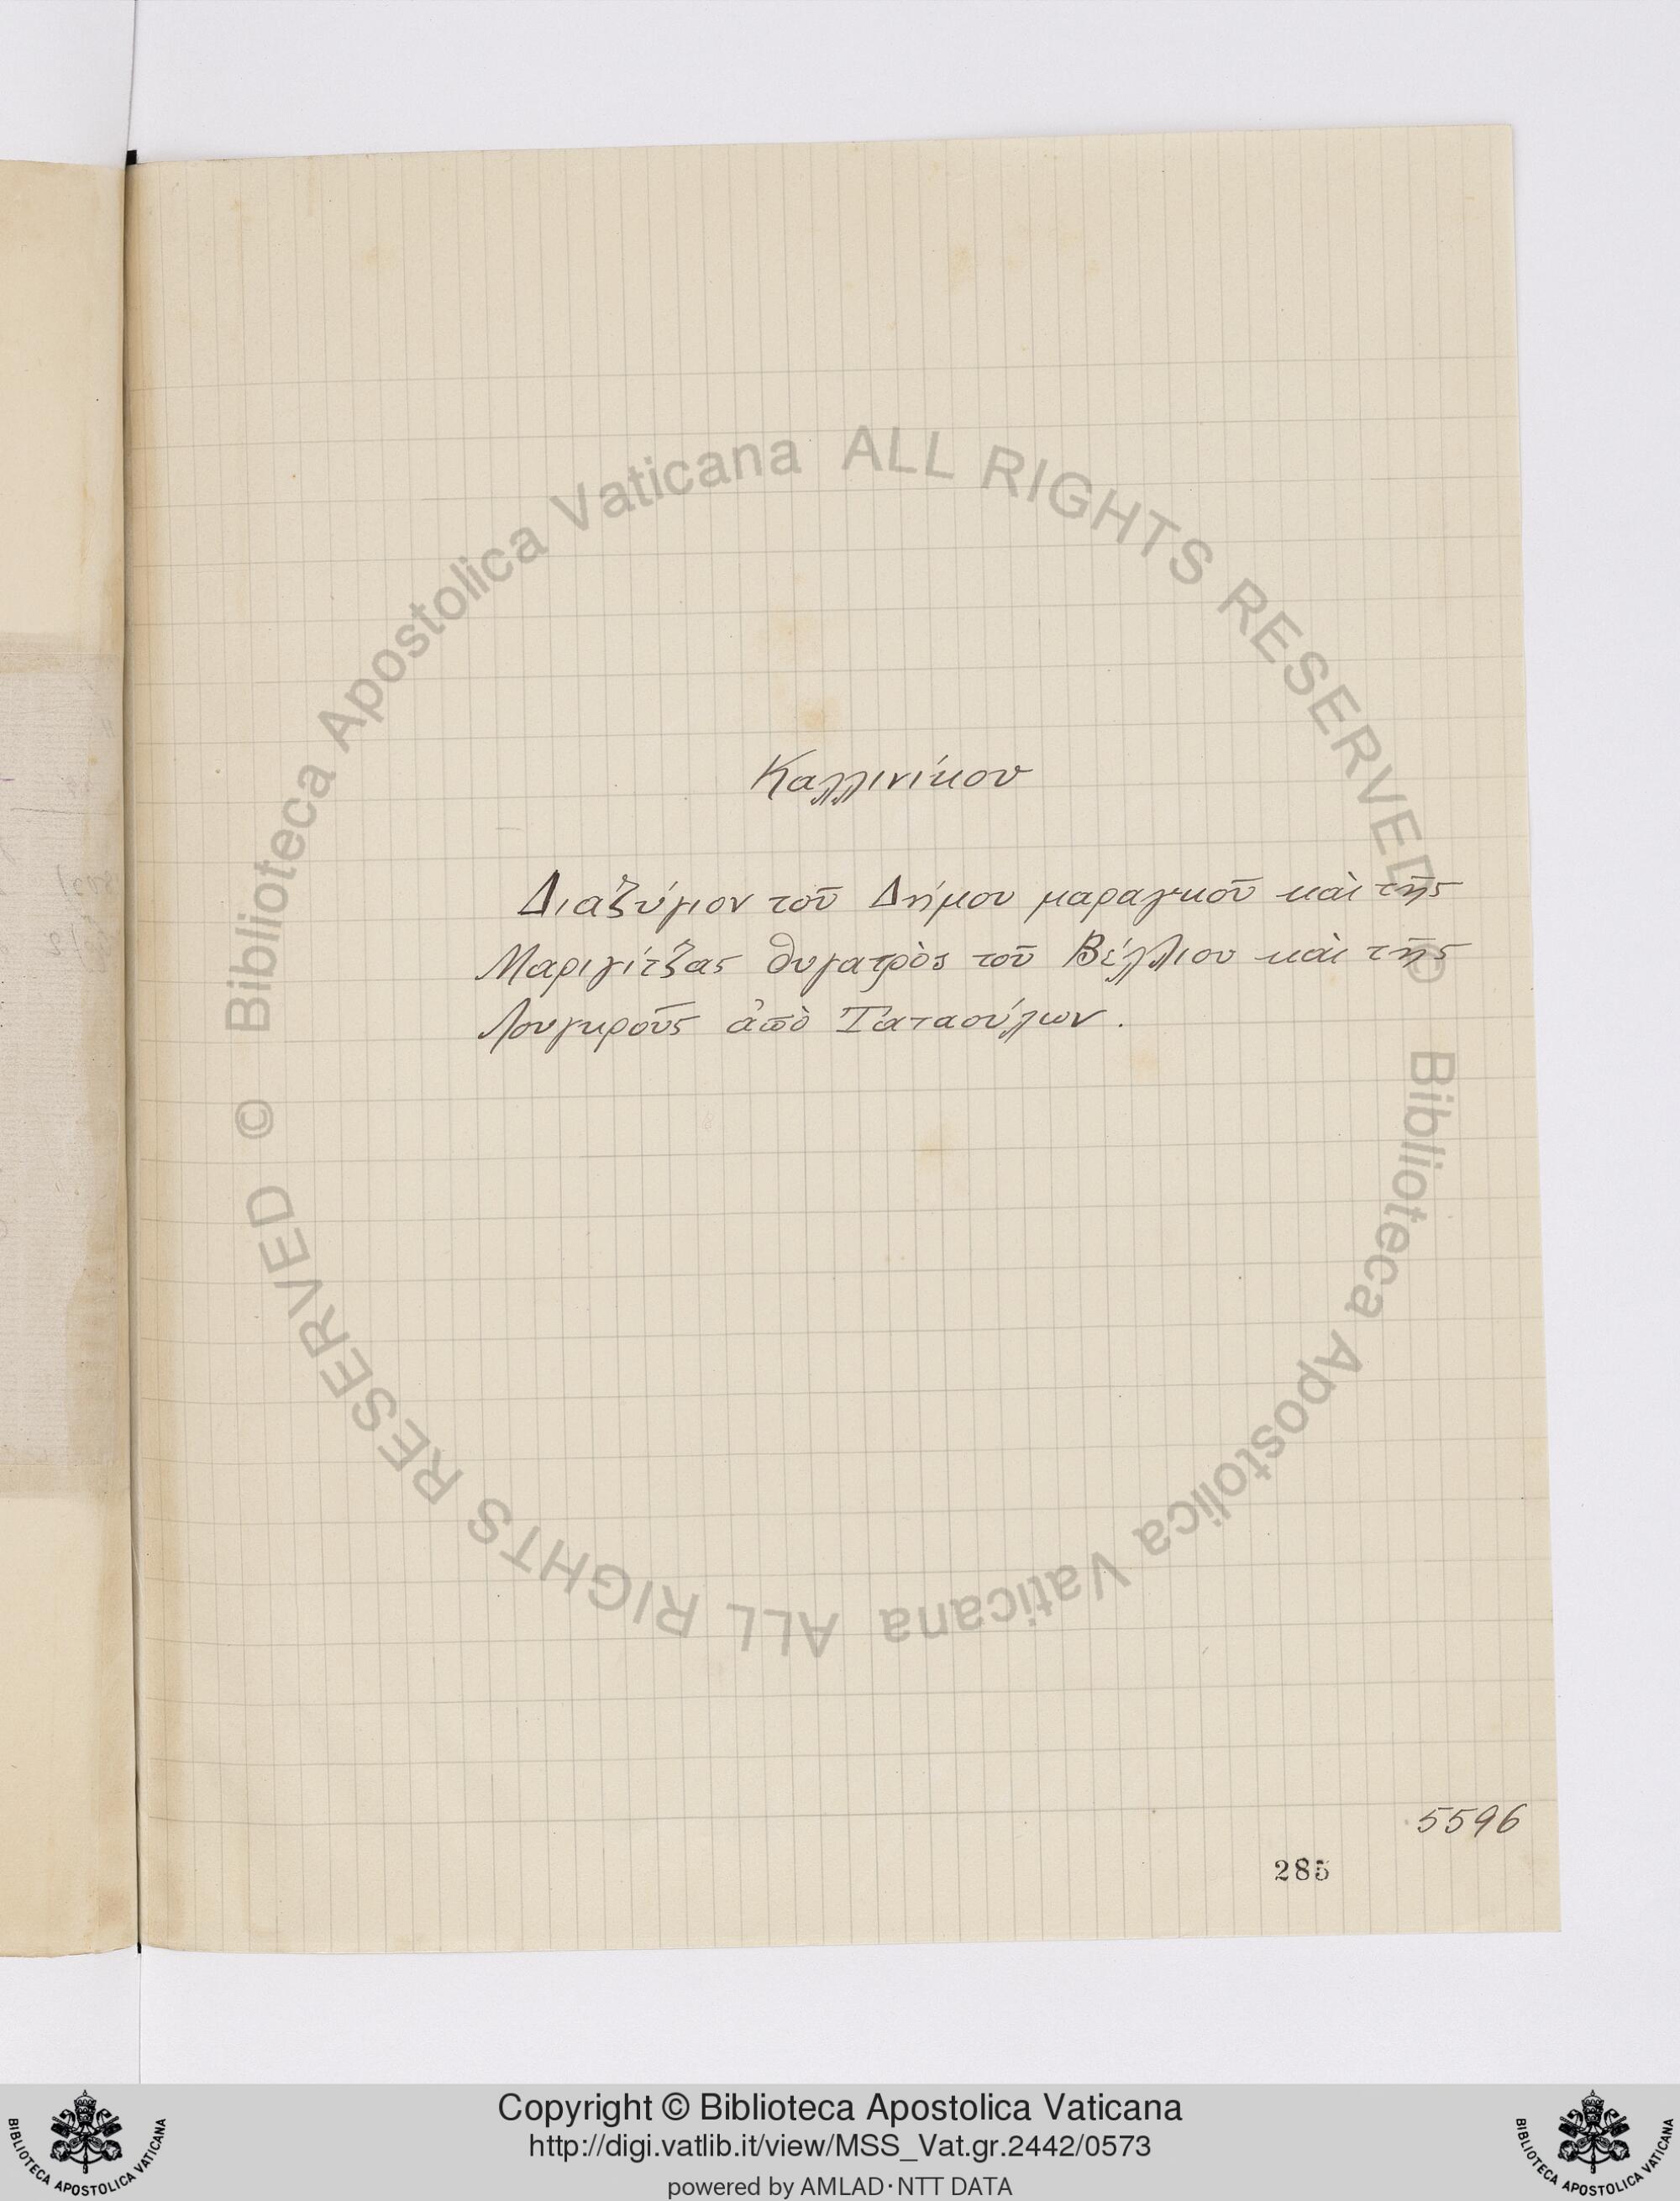 Καλλινίκου
Διαζύγιον τοῦ Δήμου μαραγκοῦ καὶ τῆς
Μαριγίτζας θυγατρὸς τοῦ Βέλλιου καὶ τῆς
Λουγκροῦς ἀπὸ Ταταούλων.
5596
285
© Biblioteca Apostolica Vaticana ALL RIGHTS RESERVED
© Biblioteca Apostolica Vaticana ALL RIGHTS RESERVED
Copyright © Biblioteca Apostolica Vaticana
http://digi.vatlib.it/view/MSS_Vat.gr.2442/0573
powered by AMLAD·NTT DATA
BIBLIOTECA APOSTOLICA VATICANA
BIBLIOTECA APOSTOLICA VATICANA